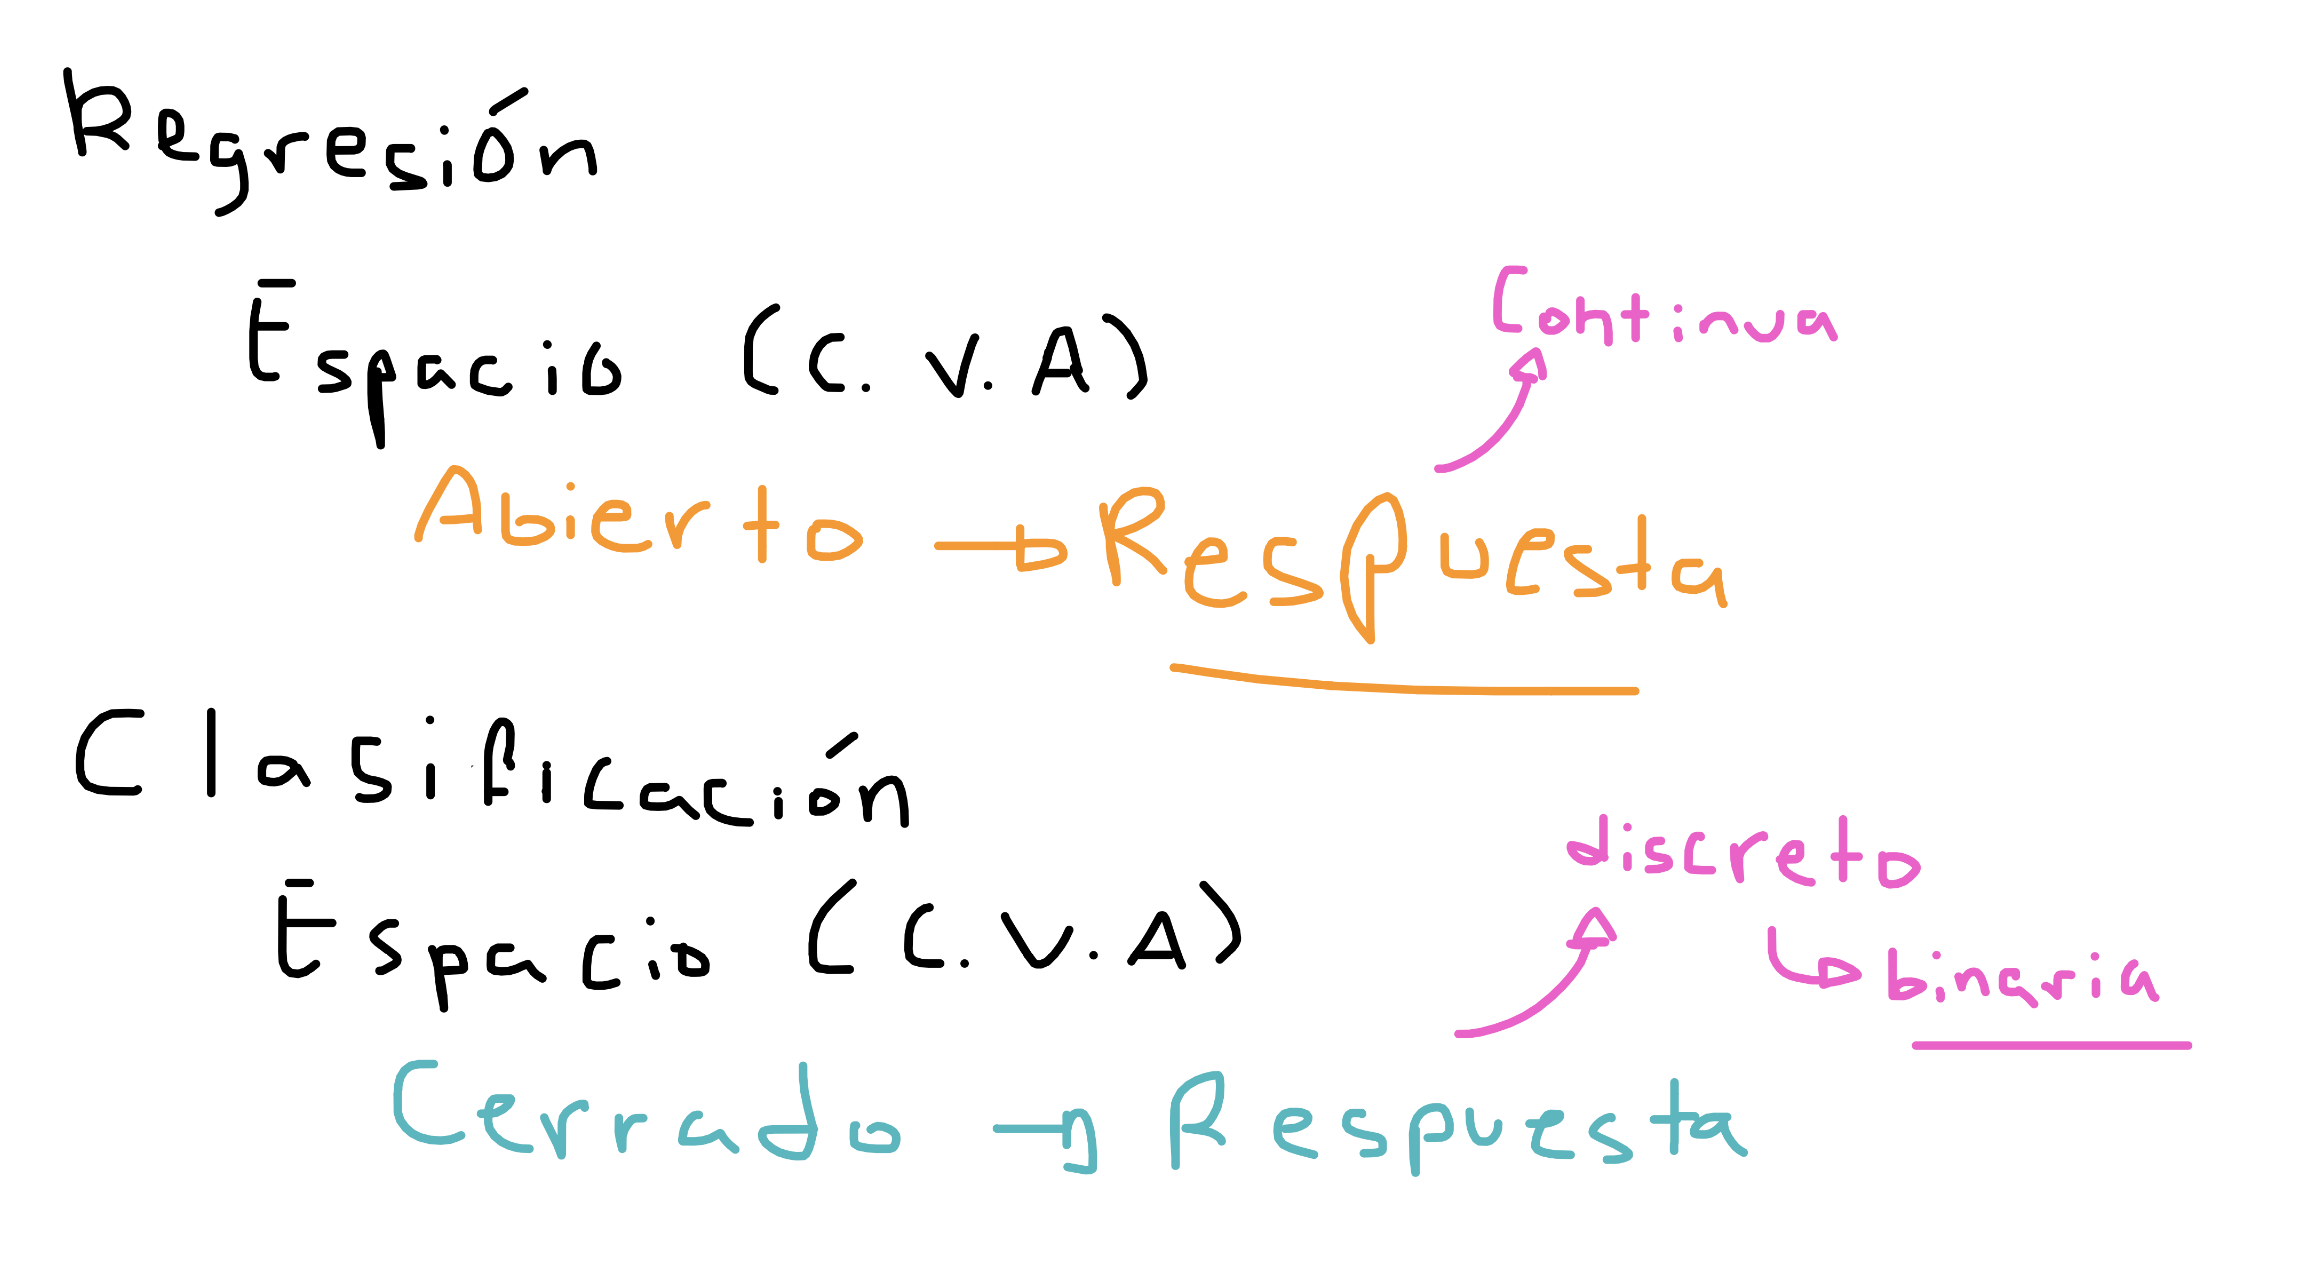 Regresión
Espacio (C. V. A)
Continua
Abierto → Respuesta
Clasificación
Espacio (C. V. A)
discreto
↳ binaria
Cerrado → Respuesta